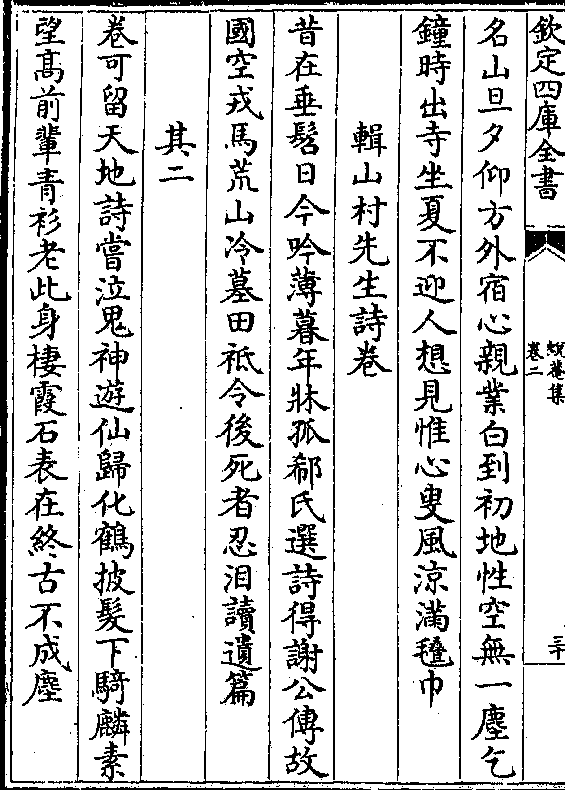 欽定四庫全書
蛻菴集
卷二
三十
名山旦夕仰方外宿心親業白到初地性空無一塵乞
鐘時出寺坐夏不迎人想見惟心叟風涼滿㲲巾
輯山村先生詩卷
昔在垂髫日今吟薄暮年牀孤郗氏選詩得謝公傳故
國空戎馬荒山冷墓田祗令後死者忍泪讀遺篇
其二
卷可留天地詩嘗泣鬼神遊仙歸化鶴披髮下騎麟素
望髙前輩青衫老此身棲霞石表在終古不成塵